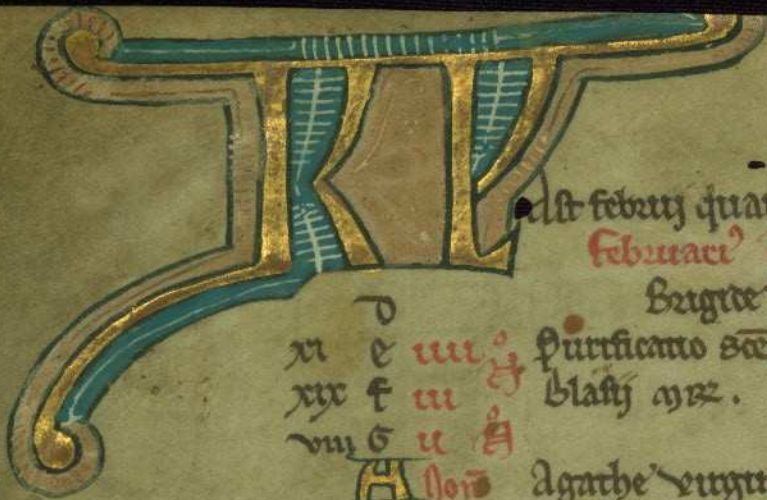 KL
Ast februi qua
Februari⁹
d Brigite
xi e iiii N̊ Purificatio sc̄e
xix f iii Blasii mr̄.
viii G ii N̊
A Non̄ Agathe virgin